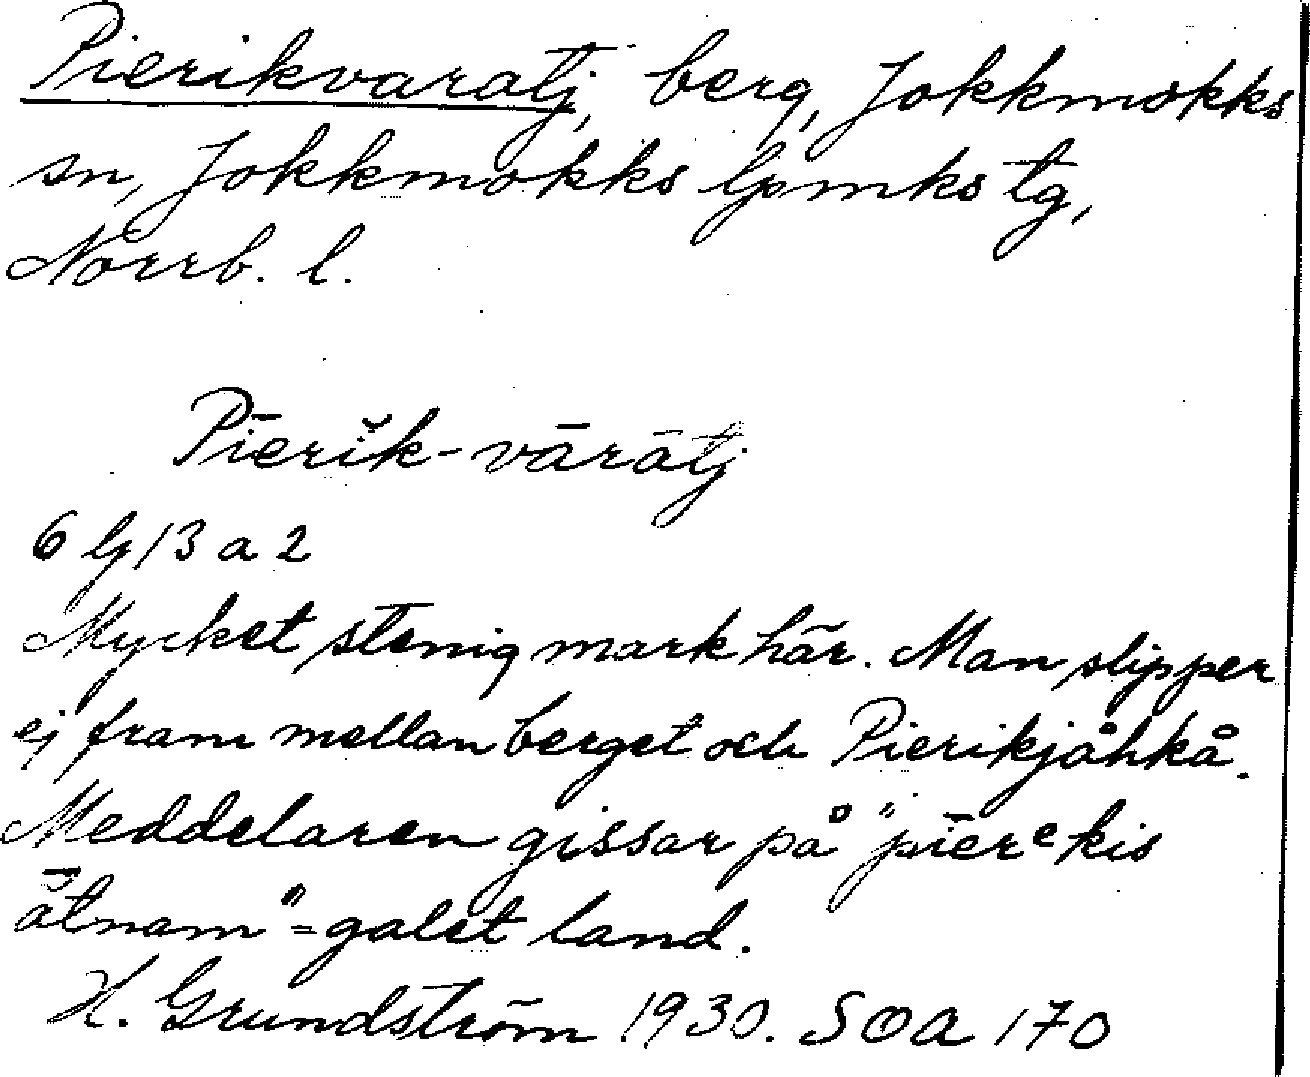 Pierikvaratj, berg, Jokkmokks
sn, Jokkmokks lpmks tg,
Norrb. l.
Pīerĭk-vārātj
6 lj 13 a 2
Mycket stenig mark här. Man slipper
ej fram mellan berget och Pierikjåhkå.
Meddelaren gissar på "pīerᵉkis
ätnam" = galet land.
H. Grundström 1930. SOA 170